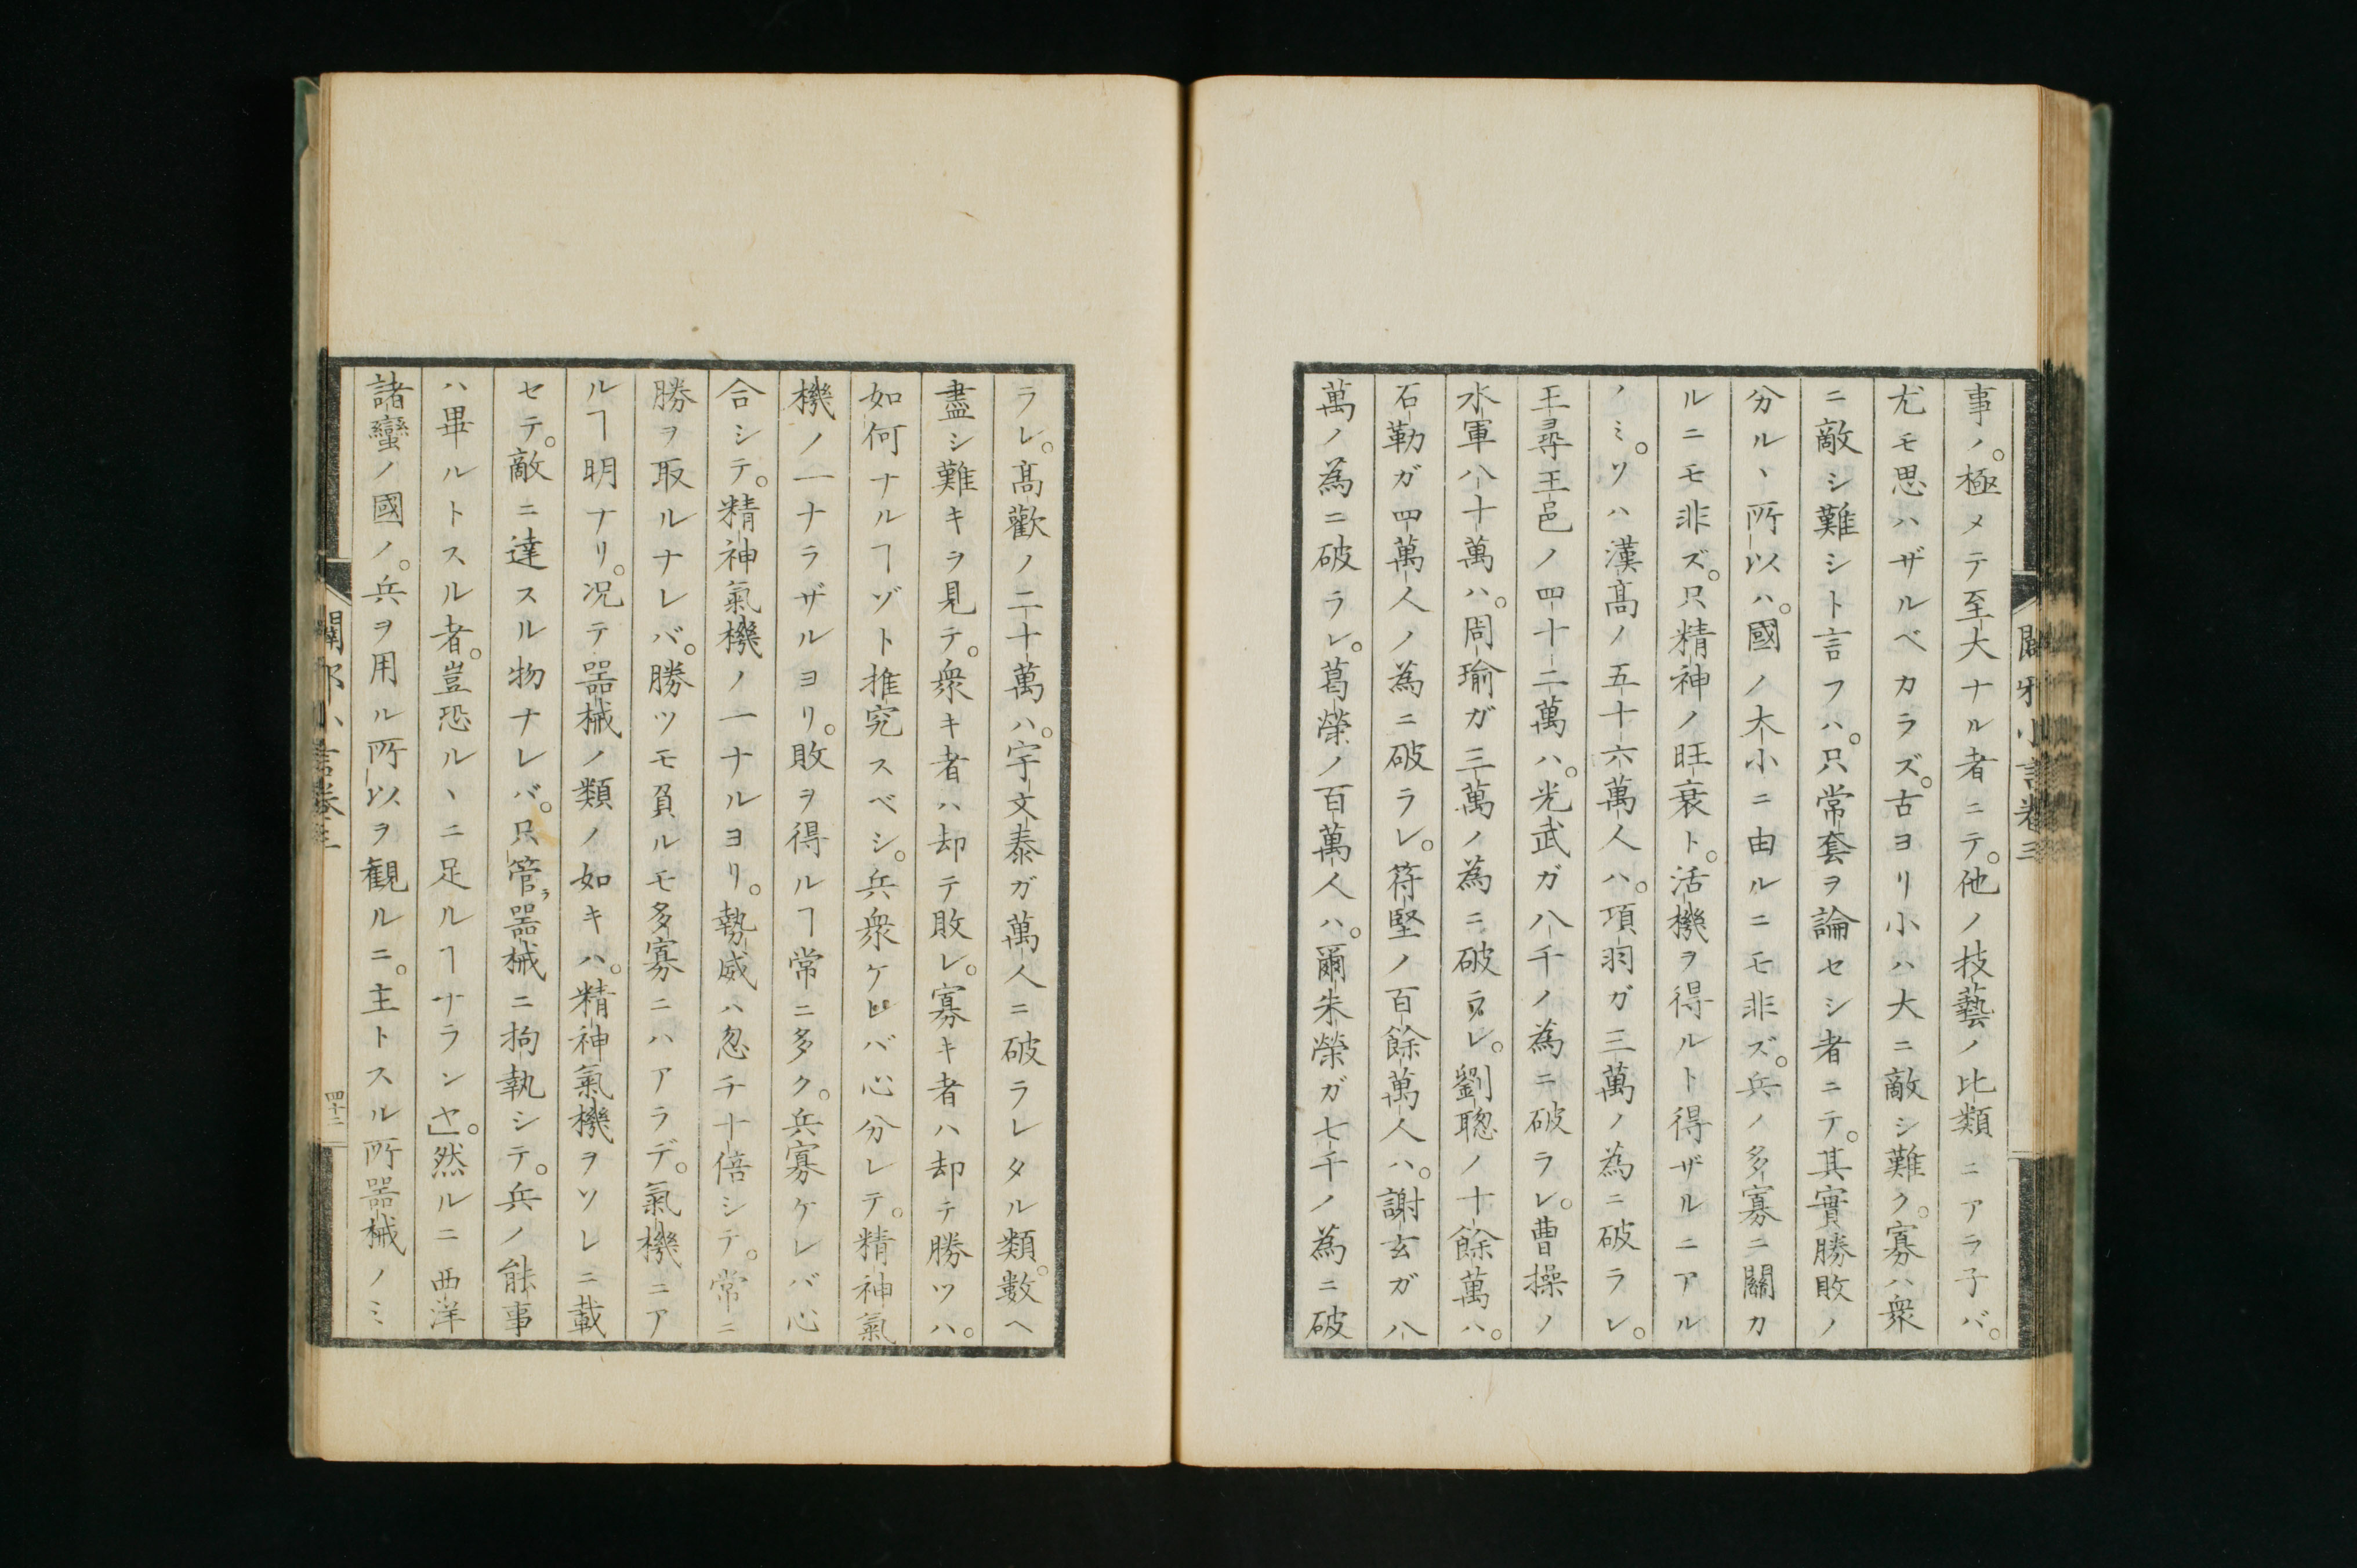 事ノ。極メテ至大ナル者ニテ。他ノ技藝ノ比類ニアラ子バ。
尤モ思ハザルベカラズ。古ヨリ小ハ大ニ敵シ難ク。寡ハ衆
ニ敵シ難シト言フハ。只常套ヲ論セシ者ニテ。其實勝敗ノ
分ルヽ所以ハ。國ノ大小ニ由ルニモ非ズ。兵ノ多寡ニ關カ
ルニモ非ズ。只精神ノ旺衰ト。活機ヲ得ルト得ザルニアル
ノミ。ソハ漢髙ノ五十六萬人ハ。項羽ガ三萬ノ為ニ破ラレ。
王尋王邑ノ四十二萬ハ。光武ガ八千ノ為ニ破ラレ。曹操ノ
水軍八十萬ハ。周瑜ガ三萬ノ為ニ破ラレ。劉聰ノ十餘萬ハ。
石勒ガ四萬人ノ為ニ破ラレ。符堅ノ百餘萬人ハ。謝玄ガ八
萬ノ為ニ破ラレ。葛榮ノ百萬人ハ。爾朱榮ガ七千ノ為ニ破
ラレ。髙歡ノ二十萬ハ。宇文泰ガ萬人ニ破ラレタル類。數ヘ
盡シ難キヲ見テ。衆キ者ハ却テ敗レ。寡キ者ハ却テ勝ツハ。
如何ナルヿゾト推究スベシ。兵衆ケレバ心分レテ。精神氣
機ノ一ナラザルヨリ。敗ヲ得ルヿ常ニ多ク。兵寡ケレバ心
合シテ。精神氣機ノ一ナルヨリ。勢威ハ忽チ十倍シテ。常ニ
勝ヲ取ルナレバ。勝ツモ負ルモ多寡ニハアラデ。氣機ニア
ルヿ明ナリ。况テ噐械ノ類ノ如キハ。精神氣機ヲソレニ載
セテ。敵ニ達スル物ナレバ。只管ラ噐械ニ拘執シテ。兵ノ能事
ハ畢ルトスル者。豈恐ルヽニ足ルヿナランヤ」。然ルニ西洋
諸蠻ノ國ノ。兵ヲ用ル所以ヲ観ルニ。主トスル所噐械ノミ
闢邪小言卷三
四十二